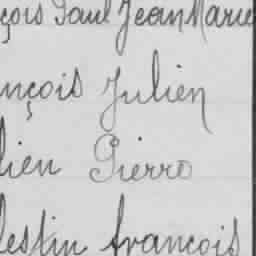 çois Paul Jean Marie
nçois Julien
lien Pierro
lestin françois